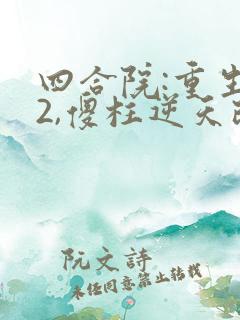 四合院:重生
2,傻柱逆天改
阮文詩
未經同意禁止轉載